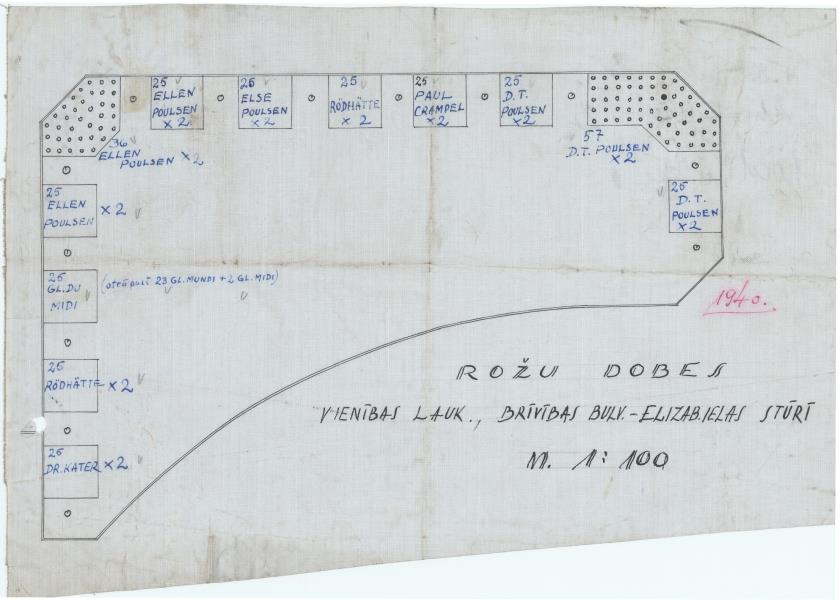 25
ELLEN
POULSEN
× 2
25
ELSE
POULSEN
× 2
25
RÖDHÄTTE
× 2
25
PAUL
CRAMPEL
× 2
25
D.T.
POULSEN
× 2
36
ELLEN
POULSEN × 2
57
D.T. POULSEN
× 2
25
ELLEN
POULSEN × 2
25
D.T.
POULSEN
× 2
25
GL.DU
MIDI
23 GL.MUNDI + 2 GL.MIDI)
1940.
25
RÖDHÄTTE × 2
25
DR.KATER × 2
ROŽU DOBES
VIENĪBAS LAUK., BRĪVĪBAS BULV.-ELIZABJELAS STŪRĪ
M. 1:100